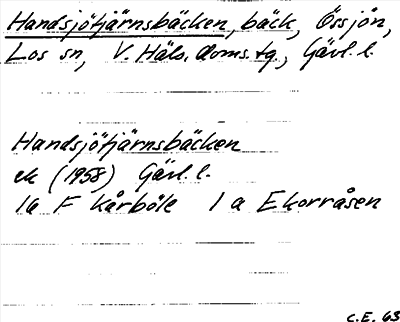 Handsjötjärnsbäcken, bäck, Össjön,
Los sn, V. Häls. doms. tg., Gävl. l.
Handsjötjärnsbäcken
ek (1958) Gävl. l.
16 F Kårböle 1 a Ekorråsen
C.E. 63